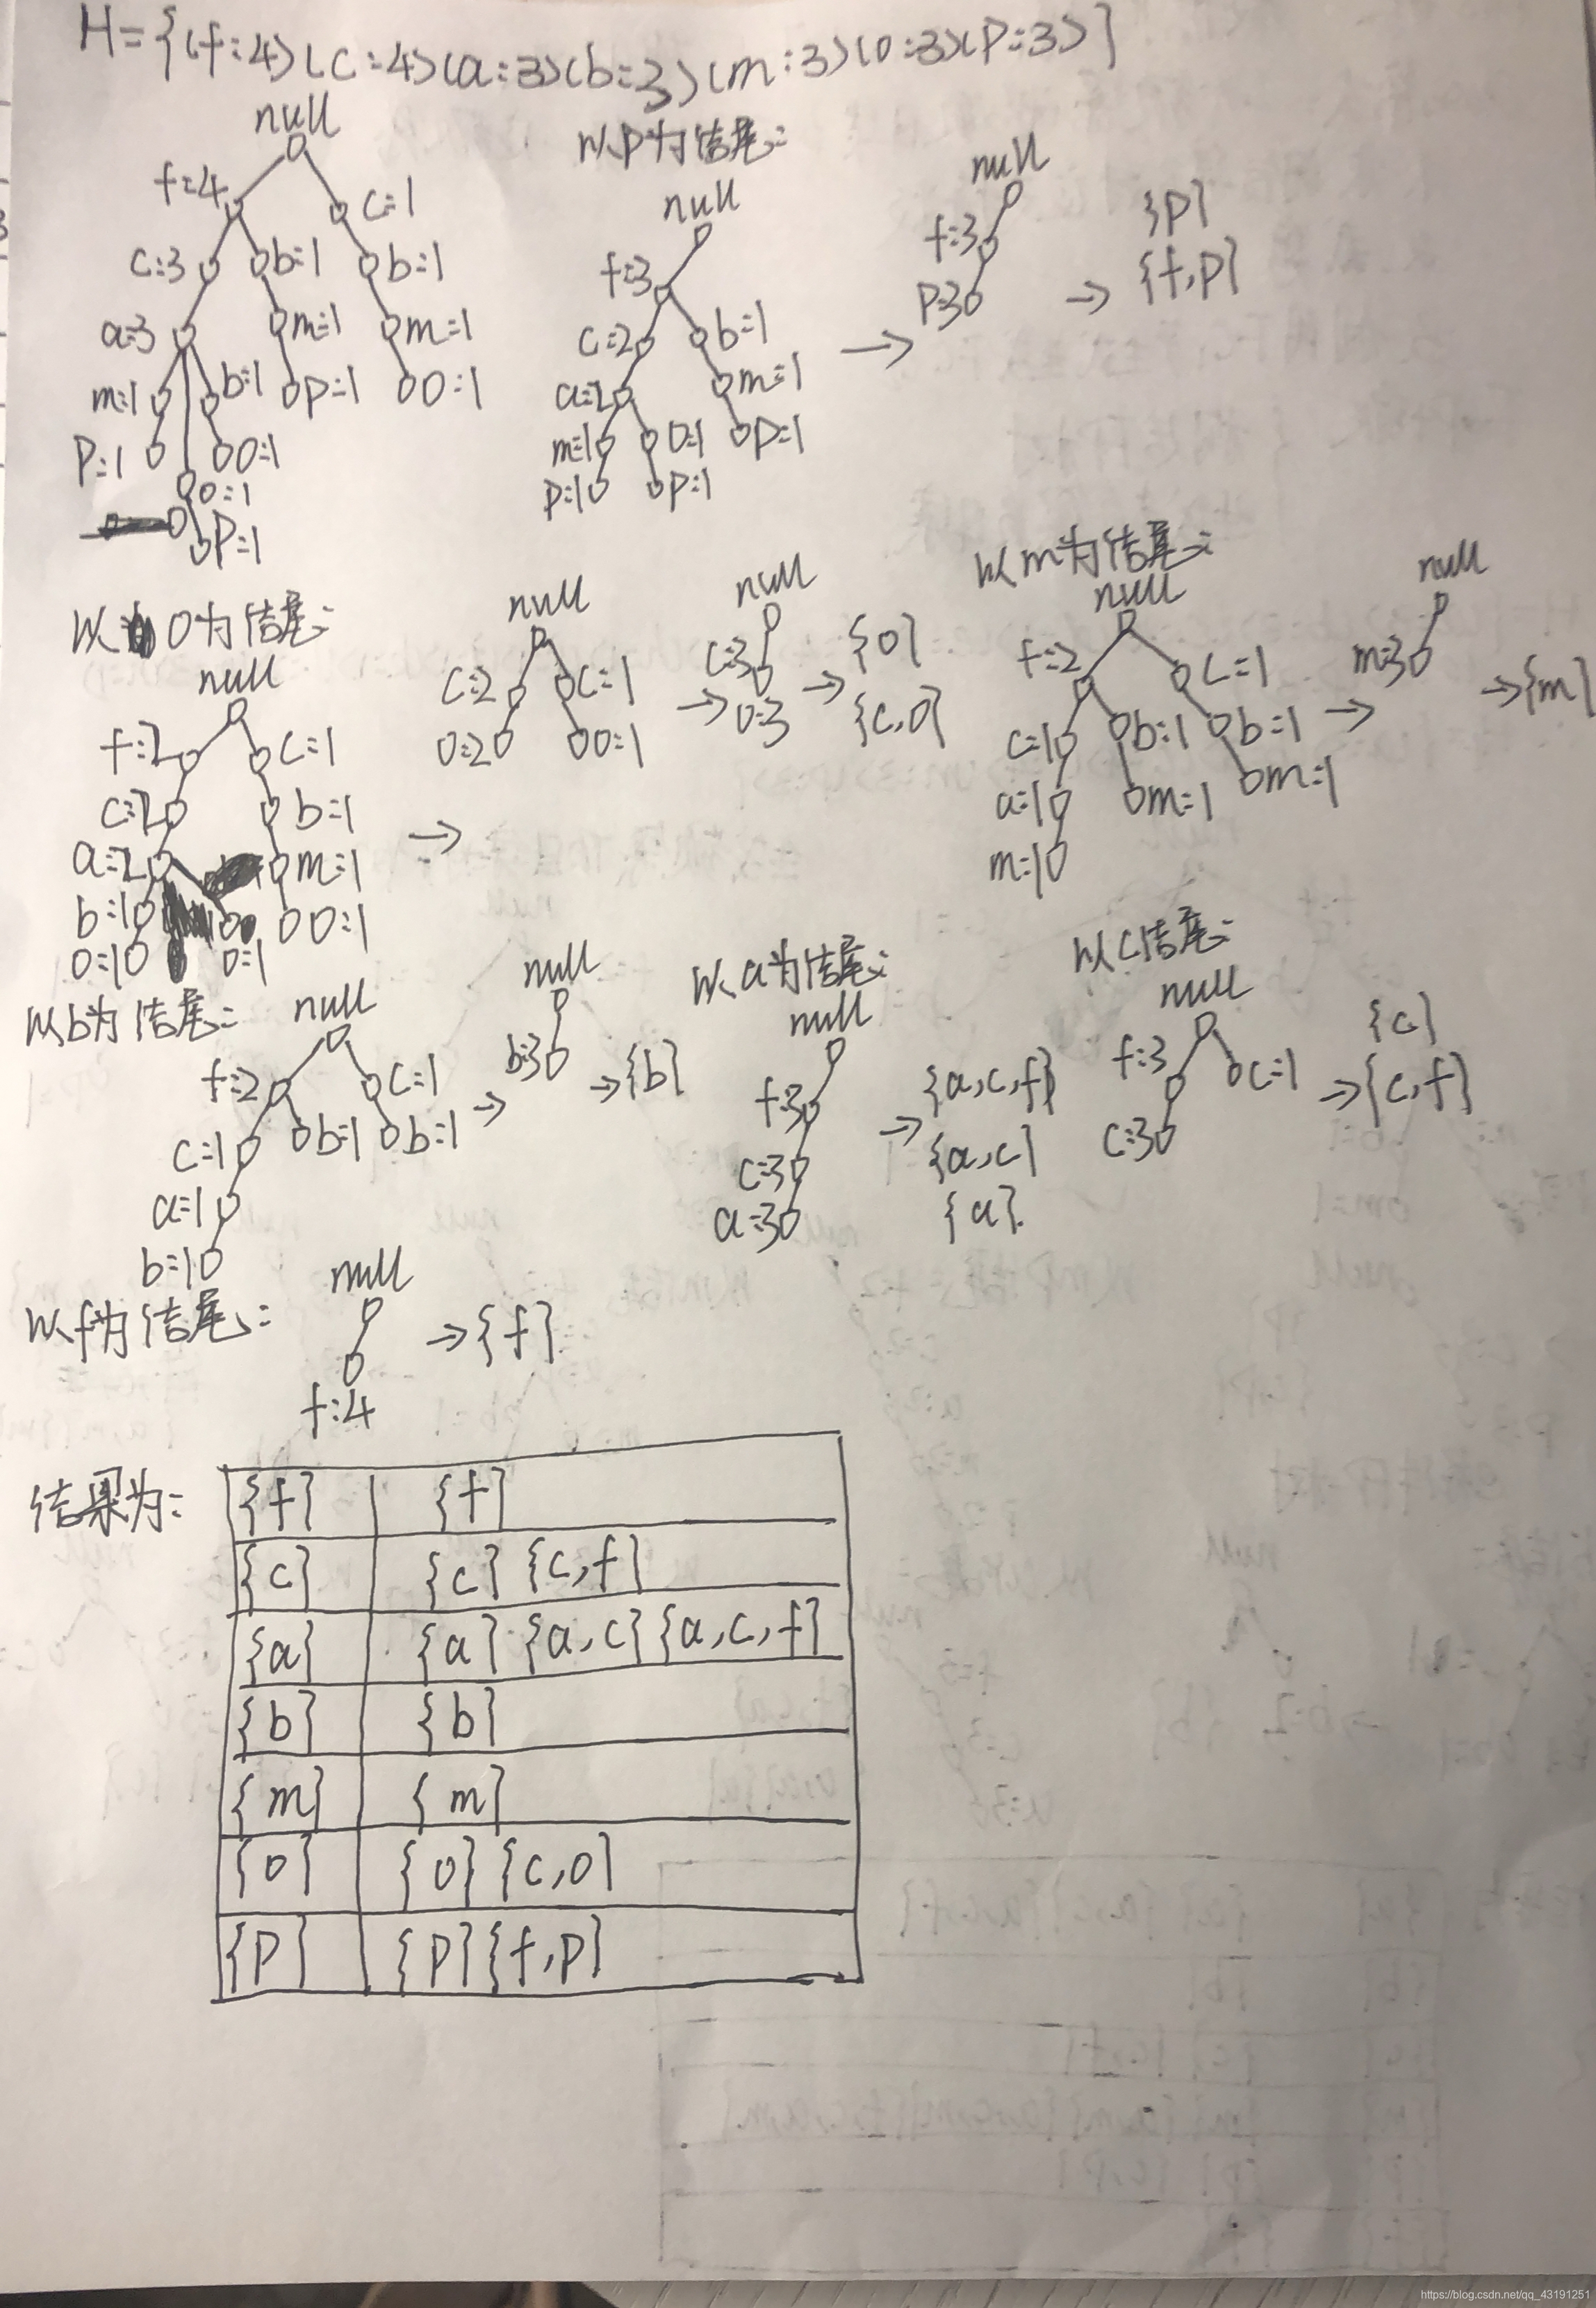 H={<f:4><c:4><a:3><b:3><m:3><o:3><p:3>}
null
f:4
c:1
c:3
b:1
b:1
a:3
m:1
m:1
m:1
b:1
p:1
o:1
p:1
o:1
o:1
p:1
以p为结尾:
null
f:3
c:2
b:1
a:2
m:1
m:1
o:1
p:1
p:1
p:1
→
null
f:3
p:3
→
{p}
{f,p}
以o为结尾:
null
f:2
c:1
c:2
b:1
a:2
m:1
b:1
o:1
o:1
o:1
→
null
c:2
c:1
o:2
o:1
→
null
c:3
o:3
→
{o}
{c,o}
以m为结尾:
null
f:2
c:1
c:1
b:1
b:1
a:1
m:1
m:1
m:1
→
null
m:3
→{m}
以b为结尾:
null
f:2
c:1
c:1
b:1
b:1
a:1
b:1
→
null
b:3
→{b}
以a为结尾:
null
f:3
c:3
a:3
→
{a,c,f}
{a,c}
{a}.
以c结尾:
null
f:3
c:1
c:3
→
{c}
{c,f}
以f为结尾:
null
f:4
→{f}
结果为:
{f} {f}
{c} {c} {c,f}
{a} {a} {a,c} {a,c,f}
{b} {b}
{m} {m}
{o} {o} {c,o}
{p} {p} {f,p}
https://blog.csdn.net/qq_43191251